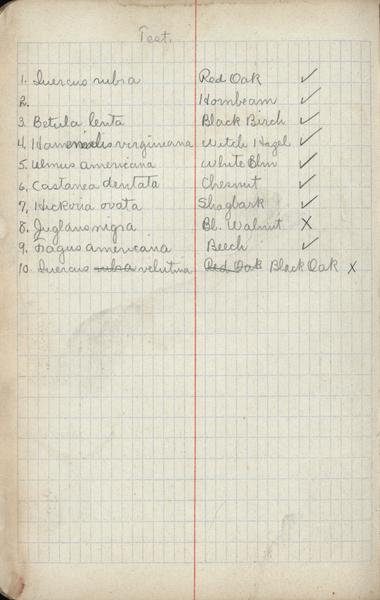 Test.
1. Quercus rubra Red Oak ✓
2. Hornbeam ✓
3. Betula lenta Black Birch ✓
4. Hamamelis virginiana Witch Hazel ✓
5. Ulmus americana White Elm ✓
6. Castanea dentata Chesnut ✓
7. Hickoria ovata Shagbark ✓
8. Juglans nigra Bl. Walnut X
9. Fagus americana Beech ✓
10. Quercus rubra velutina Red Oak Black Oak X